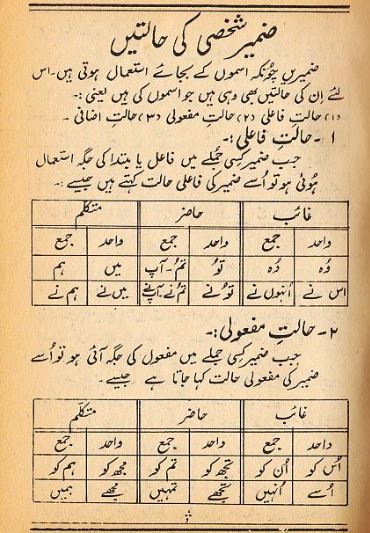 ضمیر شخصی کی حالتیں
ضمیریں چونکہ اسموں کے بجائے استعمال ہوتی ہیں۔ اس
لئے اِن کی حالتیں بھی وہی ہیں جو اسموں کی ہیں یعنی :۔
(۱) حالتِ فاعلی (۲) حالتِ مفعولی (۳) حالتِ اضافی ۔
۱ ۔ حالتِ فاعلی :۔
جب ضمیر کسی جُملے میں فاعل یا مبتدا کی جگہ استعمال
ہوئی ہو تو اُسے ضمیر کی فاعلی حالت کہتے ہیں جیسے :۔
غائب حاضر متکلم
واحد جمع واحد جمع واحد جمع
وُہ وُہ تُو تُم ۔ آپ میں ہم
اس نے اُنہوں نے تُو نے تُم نے آپ نے میں نے ہم نے
۲ ۔ حالتِ مفعولی :۔
جب ضمیر کسی جملے میں مفعول کی جگہ آئی ہو تو اُسے
ضمیر کی مفعولی حالت کہا جاتا ہے جیسے ۔
غائب حاضر متکلّم
واحد جمع واحد جمع واحد جمع
اُس کو اُن کو تجھ کو تم کو مجھ کو ہم کو
اُسے اُنہیں تجھے تمہیں مجھے ہمیں